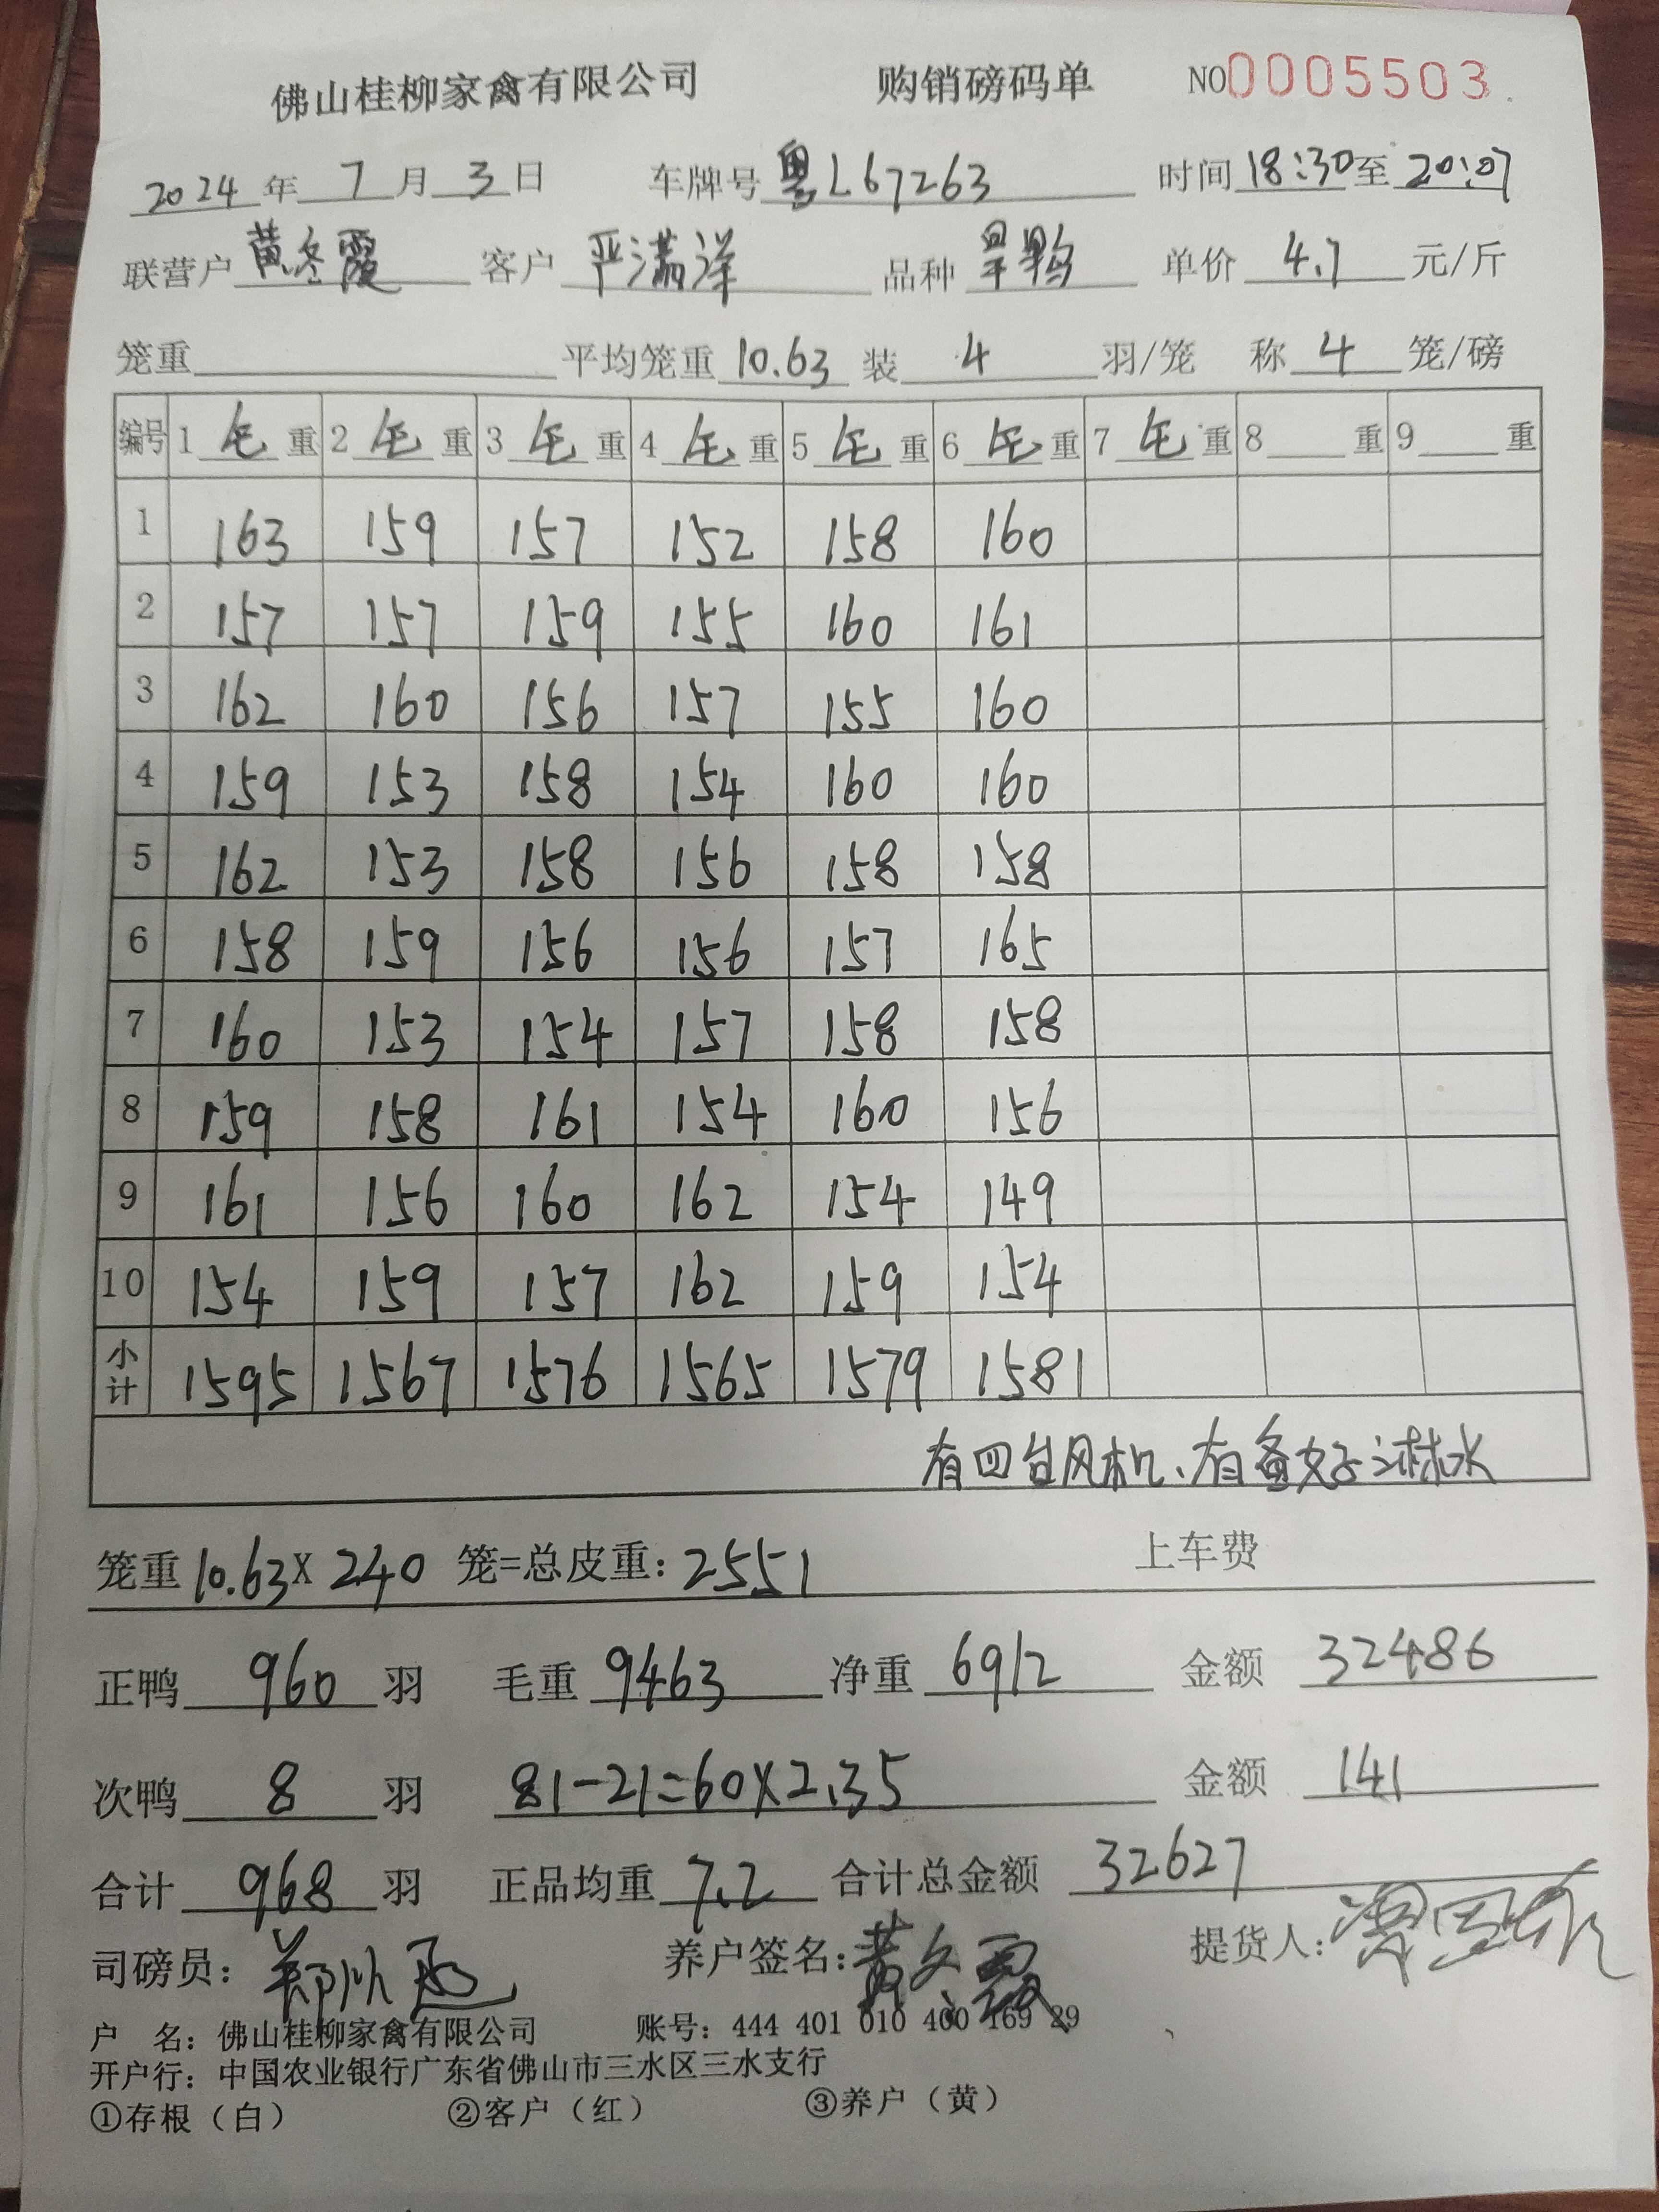 佛山桂柳家禽有限公司 购销磅码单 NO0005503
2024年 7 月 3 日 车牌号 粤L67263 时间 18:30 至 20:07
联营户 黄冬霞 客户 严满洋 品种 旱鸭 单价 4.7 元/斤
笼重 平均笼重 10.63 装 4 羽/笼 称 4 笼/磅
编号 1 毛 重 2 毛 重 3 毛 重 4 毛 重 5 毛 重 6 毛 重 7 毛 重 8 重 9 重
1 163 159 157 152 158 160
2 157 157 159 155 160 161
3 162 160 156 157 155 160
4 159 153 158 154 160 160
5 162 153 158 156 158 158
6 158 159 156 156 157 165
7 160 153 154 157 158 158
8 159 158 161 154 160 156
9 161 156 160 162 154 149
10 154 159 157 162 159 154
小计 1595 1567 1576 1565 1579 1581
有四台风机、有备好淋水
笼重 10.63 X 240 笼=总皮重: 2551 上车费
正鸭 960 羽 毛重 9463 净重 6912 金额 32486
次鸭 8 羽 81-21=60X2.35 金额 141
合计 968 羽 正品均重 7.2 合计总金额 32627
司磅员: 养户签名: 黄冬霞 提货人:
户 名: 佛山桂柳家禽有限公司 账号: 444 401 010 400 169 29
开户行: 中国农业银行广东省佛山市三水区三水支行
①存根（白） ②客户（红） ③养户（黄）